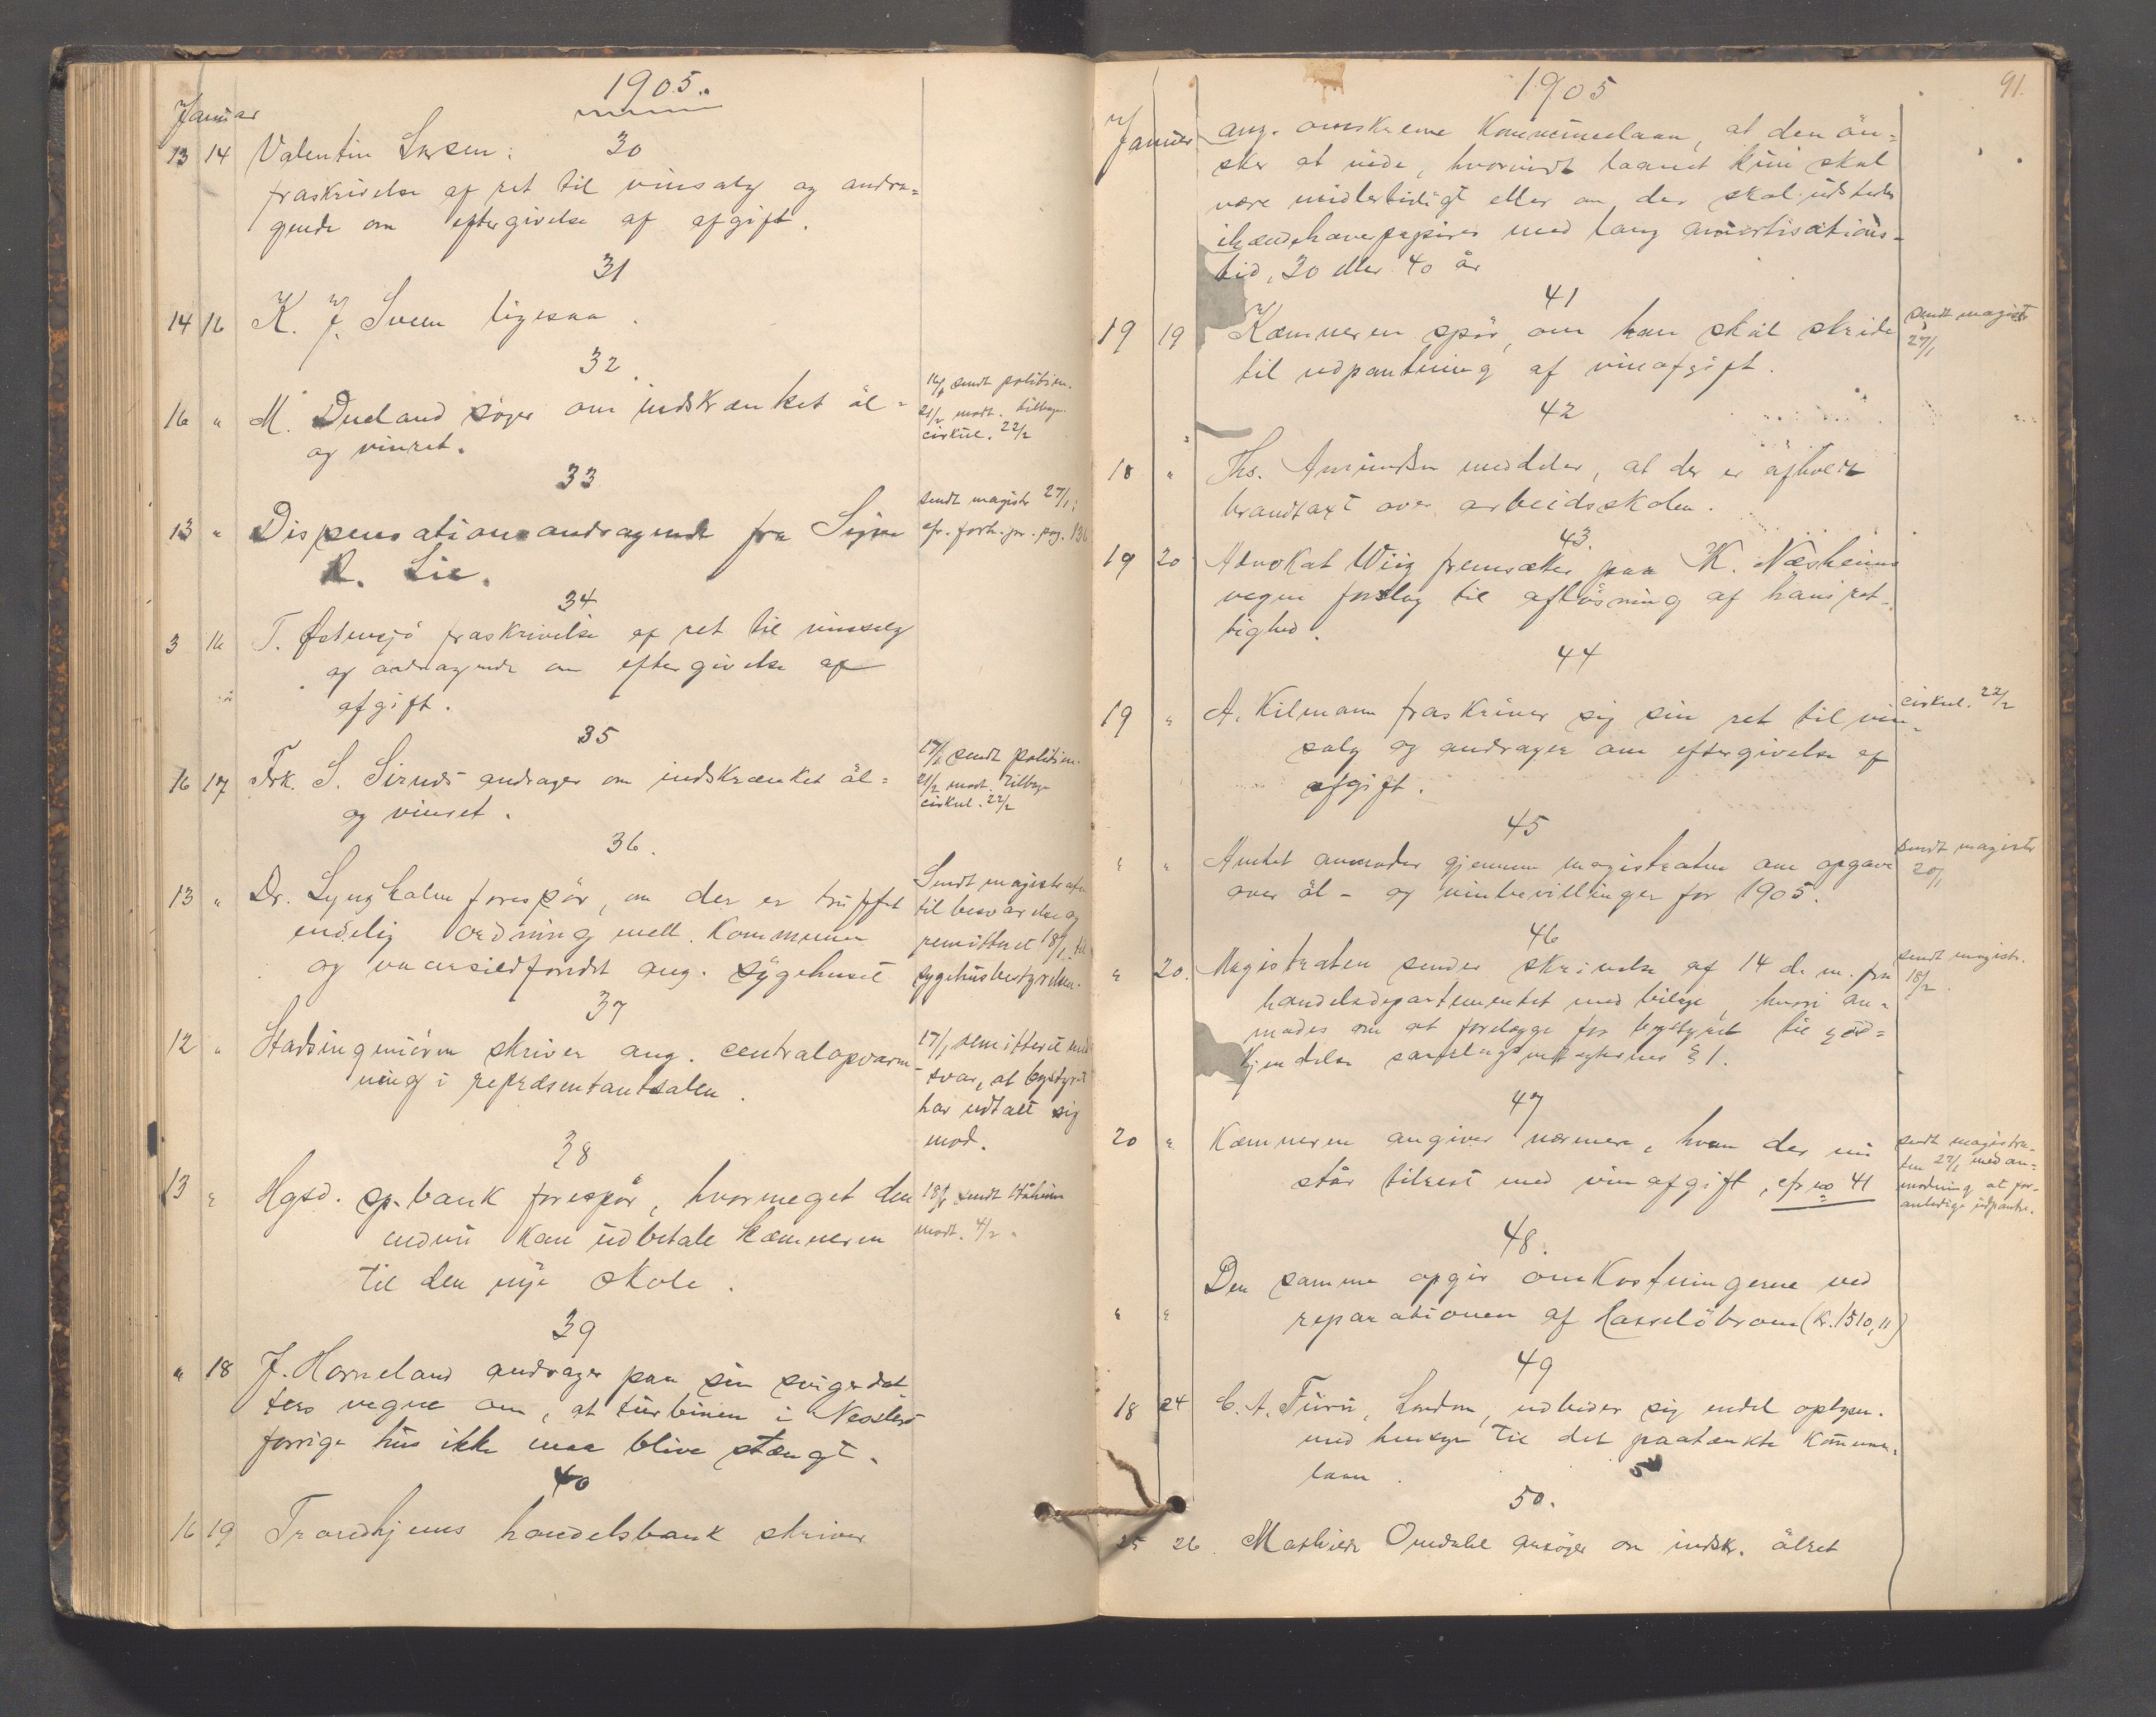 1905.
Januar
30
13 14 Valentin Larsen:
fraskrivelse af ret til vinsalg og andra=
gende om eftergivelse af afgift.
31
14 16 K. J. Sveen ligesaa.
32
16 " M. Dueland søger om indskrænket öl=
og vinret.
16/1 sendt politim.
21/2 modt. tilbage.
cirkul. 22/2
33
13 " Dispensationsandragende fra Signe
R. Lie.
sendt magistr 27/1;
cfr. forh. pr. pag. 136
34
3 16 T. Østensjö fraskrivelse af ret til vinsalg
og andragende om eftergivelse af
afgift.
35
16 17 Frk. S. Sirnes andrager om indskrænket öl=
og vinret.
17/1 sendt politim.
21/2 modt. tilbage
cirkul. 22/2
36.
13 " Dr. Lyngholm forespör, om der er truffet
endelig ordning mell. Kommunen
og vaarsildfondet ang. sygehuset
Sendt magistraten
til besvarelse og
remitteret 18/1 til
sygehusbestyrelsen.
37
12 " Stadsingeniören skriver ang. centralopvarm=
ning i repræsentantsalen.
17/1 remitteret med
svar, at bystyret
har udtalt sig
mod.
38
13 " Hgsd. sp.bank forespör, hvormeget den
endnu kan udbetale kæmneren
til den nye skole.
18/1 sendt
modt. 4/2.
39
" 18 J. Horneland andrager paa sin svigerdat
ters vegne om, at turbinen i
forrige hus ikke maa blive stængt.
40
16 19 Trondhjems handelsbank skriver
1905
91.
Januar
ang. omskrevne Kommunelaan, at den ön=
sker at vide, hvorvidt laanet kun skal
være midlertidigt eller om der skal udstedes
ihændehaverpapirer med lang amortisations=
tid, 30 eller 40 år
41
19 19 Kæmneren spör, om han skal skride
til udpantning af vinafgift.
sendt magistr
27/1
42
18 " Ths. Amundsen meddeler, at der er afholdt
brandtaxt over arbeidsskolen.
43.
19 20 Advokat Wiig fremsætter paa K. Næsheims
vegne forslag til aflösning af hans ret-
tighed.
44
19 " A. Kilmann fraskriver sig sin ret til vin=
salg og andrager om eftergivelse af
afgift.
cirkul. 22/2
45
" " Amtet anmoder gjennem magistraten om opgave
over öl- og vinbevillinger for 1905.
sendt magistr
20/1
46
" 20. Magistraten sender skrivelse af 14 d. m. fra
handelsdepartementet med bilage, hvori an=
modes om at forelægge for bystyret til god=
kjendelse samlagsvedtægternes § 1.
sendt magistr.
18/2.
47
20 " Kæmneren angiver nærmere, hvem der nu
står tilrest med vinafgift, cfr no 41
sendt magistra-
ten 27/1 med an=
modning at for-
anledige udpantn.
48.
" " Den samme opgir omkostningerne ved
reparationen af Hasselöbroen (kr. 1510,11)
49
18 24 C. A. Furu, London, udbeder sig endel oplysn.
med hensyn til det paatænkte Kommu=
laan.
50.
25 26. Mathilde Omdahl ansöger om indskr. ölret